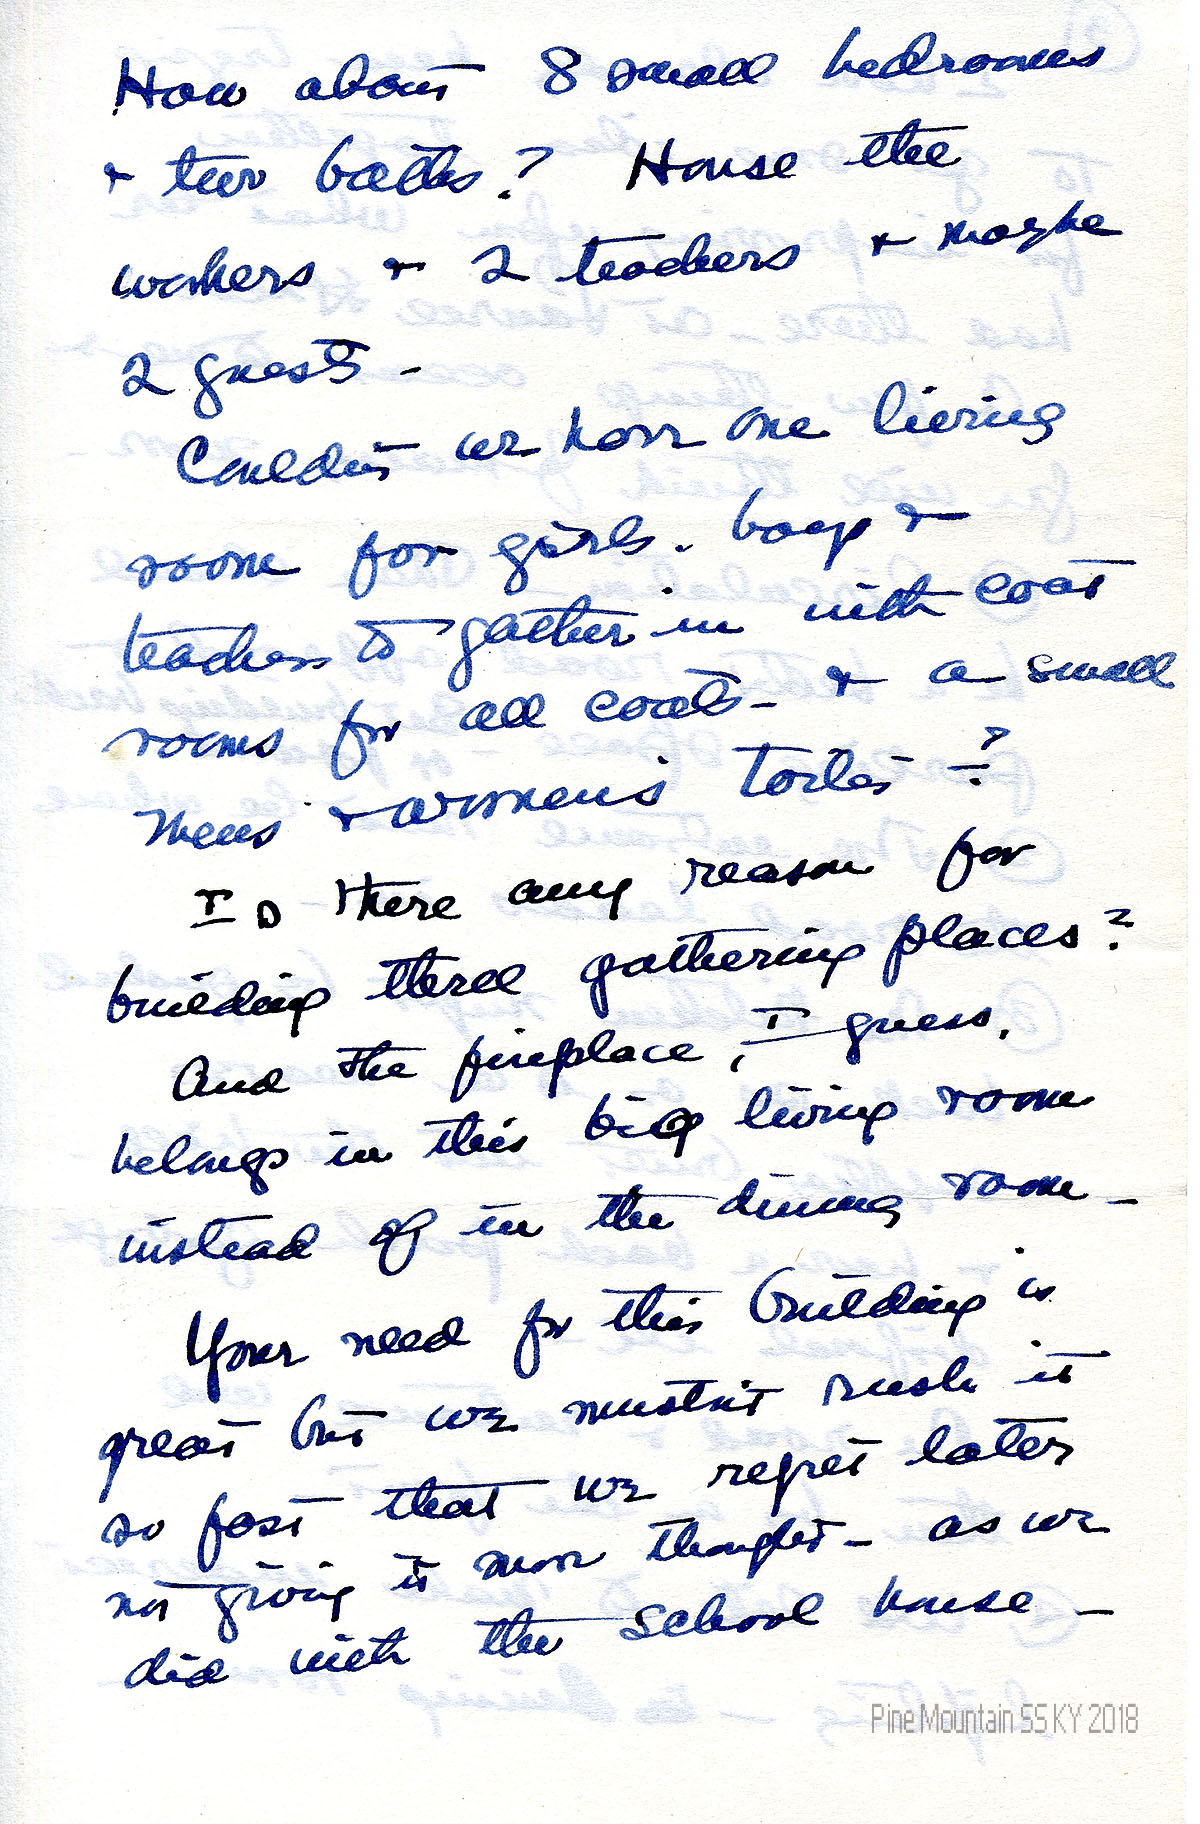 How about 8 small bedrooms
& two baths? House the
workers & 2 teachers & maybe
2 guests -
Couldn't we have one living
room for girls, boys &
teachers to gather in with coat
rooms for all coats - & a small
mens & women's toilet - ?
Is there any reason for
building three gathering places?
And the fireplace, I guess,
belongs in this big living room
instead of in the dining room -
Your need for this building is
great but we mustn't rush it
so fast that we regret later
not giving it more thought - as we
did with the school house -
Pine Mountain SS KY 2018